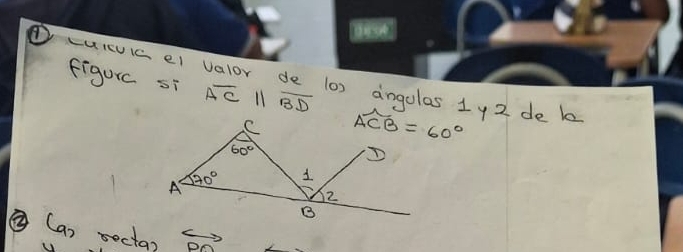 ① Calcula el valor de los ángulos 1 y 2 de la
figura si AC || BD ACB = 60°
C
60°
D
A
70°
1
2
B
② Las rectas PQ